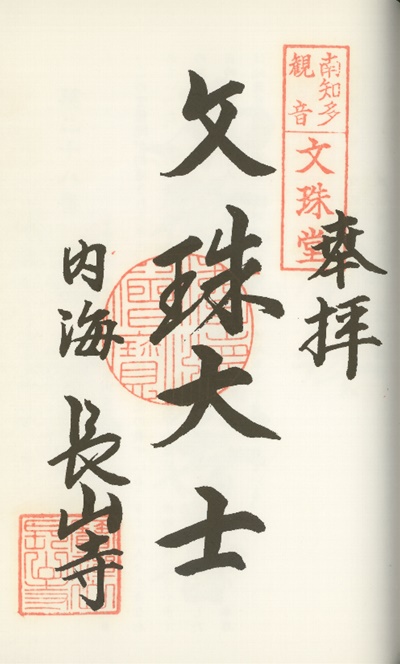 南知多
観音
文珠堂
奉拝
文珠大士
内海
長山寺